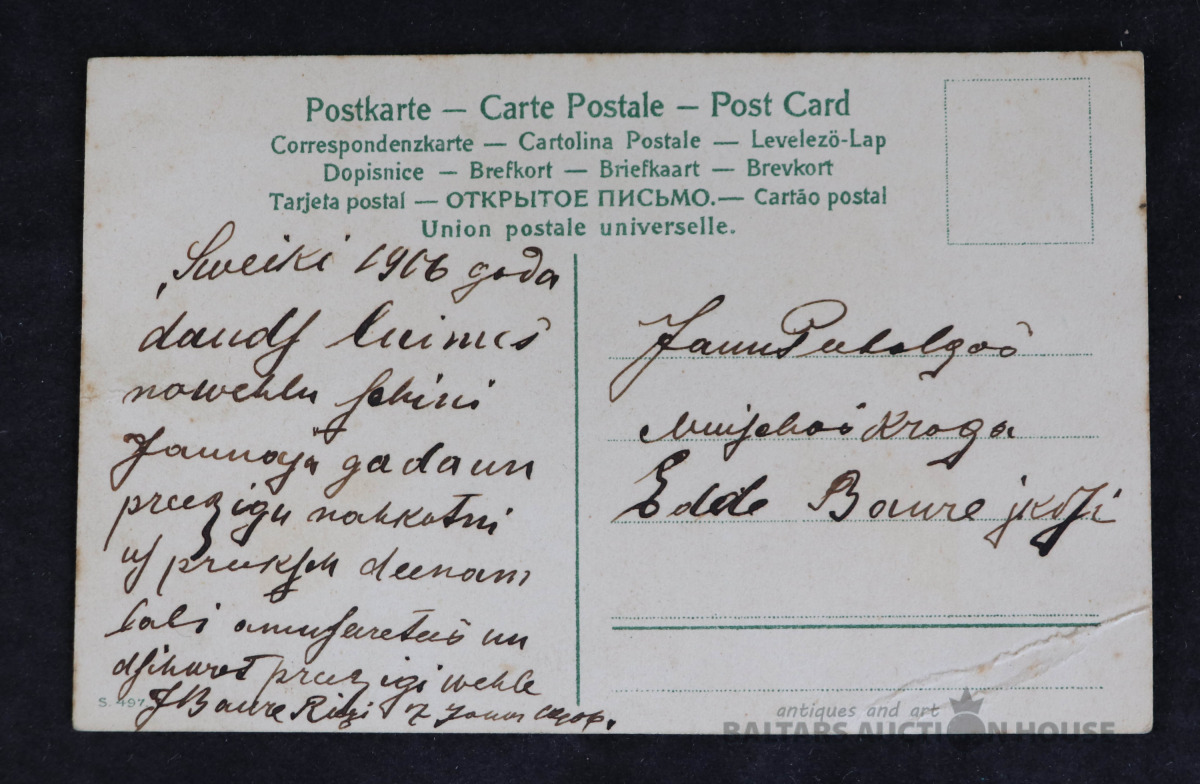 Postkarte — Carte Postale — Post Card
Correspondenzkarte — Cartolina Postale — Levelezö-Lap
Dopisnice — Brefkort — Briefkaart — Brevkort
Tarjeta postal — ОТКРЫТОЕ ПИСЬМО. — Cartão postal
Union postale universelle.
Sweiki 1906 goda
daudf
nowehlu schini
Jaunajā gada un
preezigu nahkotni
uf deenam
labi amuferetees un
dfihwot preezigi wehle
JBaure Rigi 7
Jaun Peebalgas
Muischas Kroga
Edde Baure jkdfi
S. 497
antiques and art
BALTARS AUCTION HOUSE